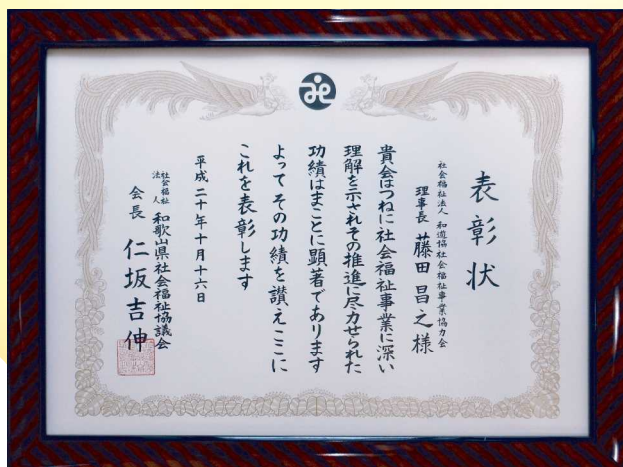 表彰状
社会福祉法人 和遊協社会福祉事業協力会
理事長 藤田昌之様
貴会はつねに社会福祉事業に深い
理解を示されその推進に尽力せられた
功績はまことに顕著であります
よってその功績を讃えここに
これを表彰します
平成二十年十月十六日
社会福祉法人 和歌山県社会福祉協議会
会長 仁坂吉伸